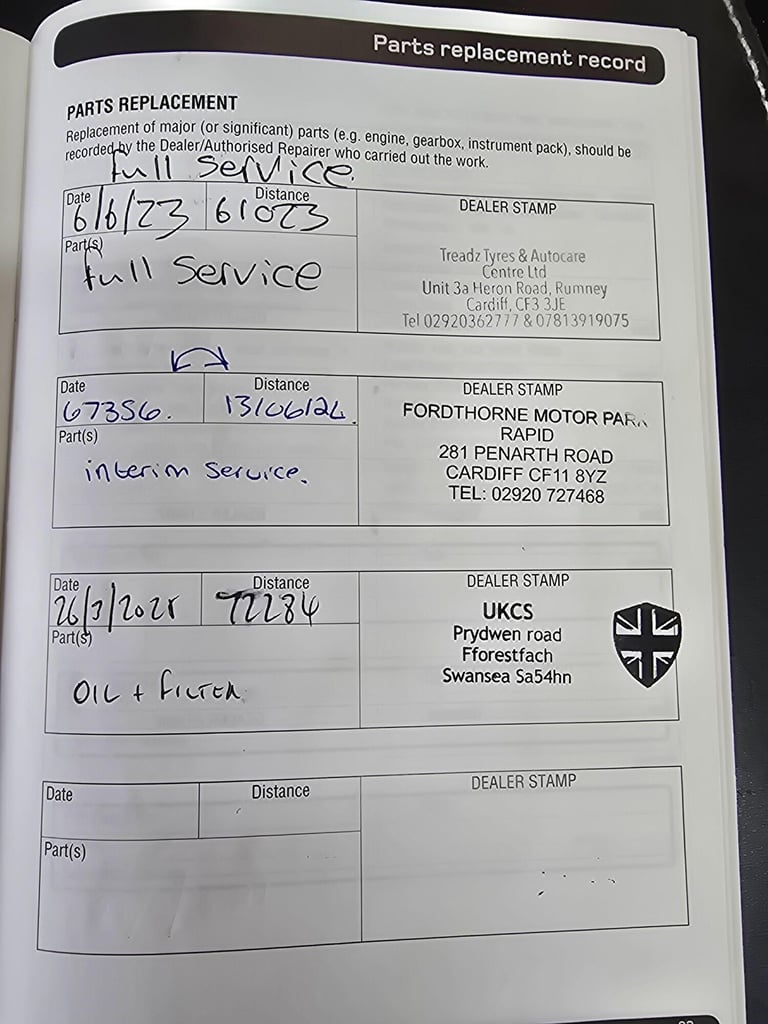 Parts replacement record
PARTS REPLACEMENT
Replacement of major (or significant) parts (e.g. engine, gearbox, instrument pack), should be
recorded by the Dealer/Authorised Repairer who carried out the work.
full service.
Date
Distance
6/6/23
61023
Part(s)
full service
DEALER STAMP
Treadz Tyres & Autocare
Centre Ltd
Unit 3a Heron Road, Rumney
Cardiff, CF3 3JE
Tel 02920362777 & 07813919075
Date
Distance
67356.
13/06/24.
Part(s)
interim service.
DEALER STAMP
FORDTHORNE MOTOR PARK
RAPID
281 PENARTH ROAD
CARDIFF CF11 8YZ
TEL: 02920 727468
Date
Distance
26/3/2025
72284
Part(s)
OIL + FILTER
DEALER STAMP
UKCS
Prydwen road
Fforestfach
Swansea Sa54hn
Date
Distance
Part(s)
DEALER STAMP